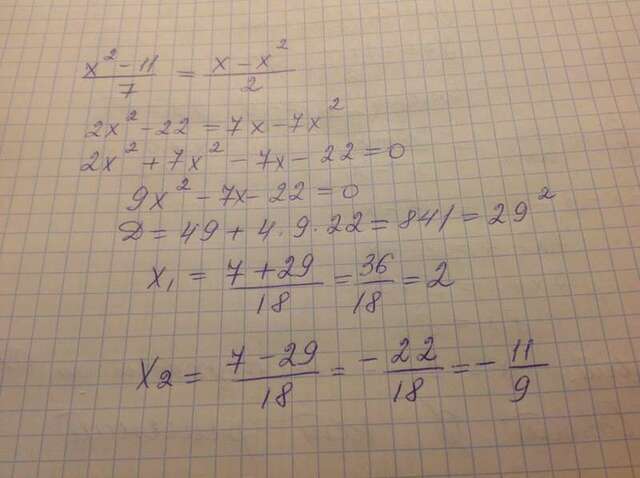 x² - 11 / 7 = x - x² / 2
2x² - 22 = 7x - 7x²
2x² + 7x² - 7x - 22 = 0
9x² - 7x - 22 = 0
D = 49 + 4·9·22 = 841 = 29²
x₁ = 7 + 29 / 18 = 36 / 18 = 2
x₂ = 7 - 29 / 18 = - 22 / 18 = - 11 / 9